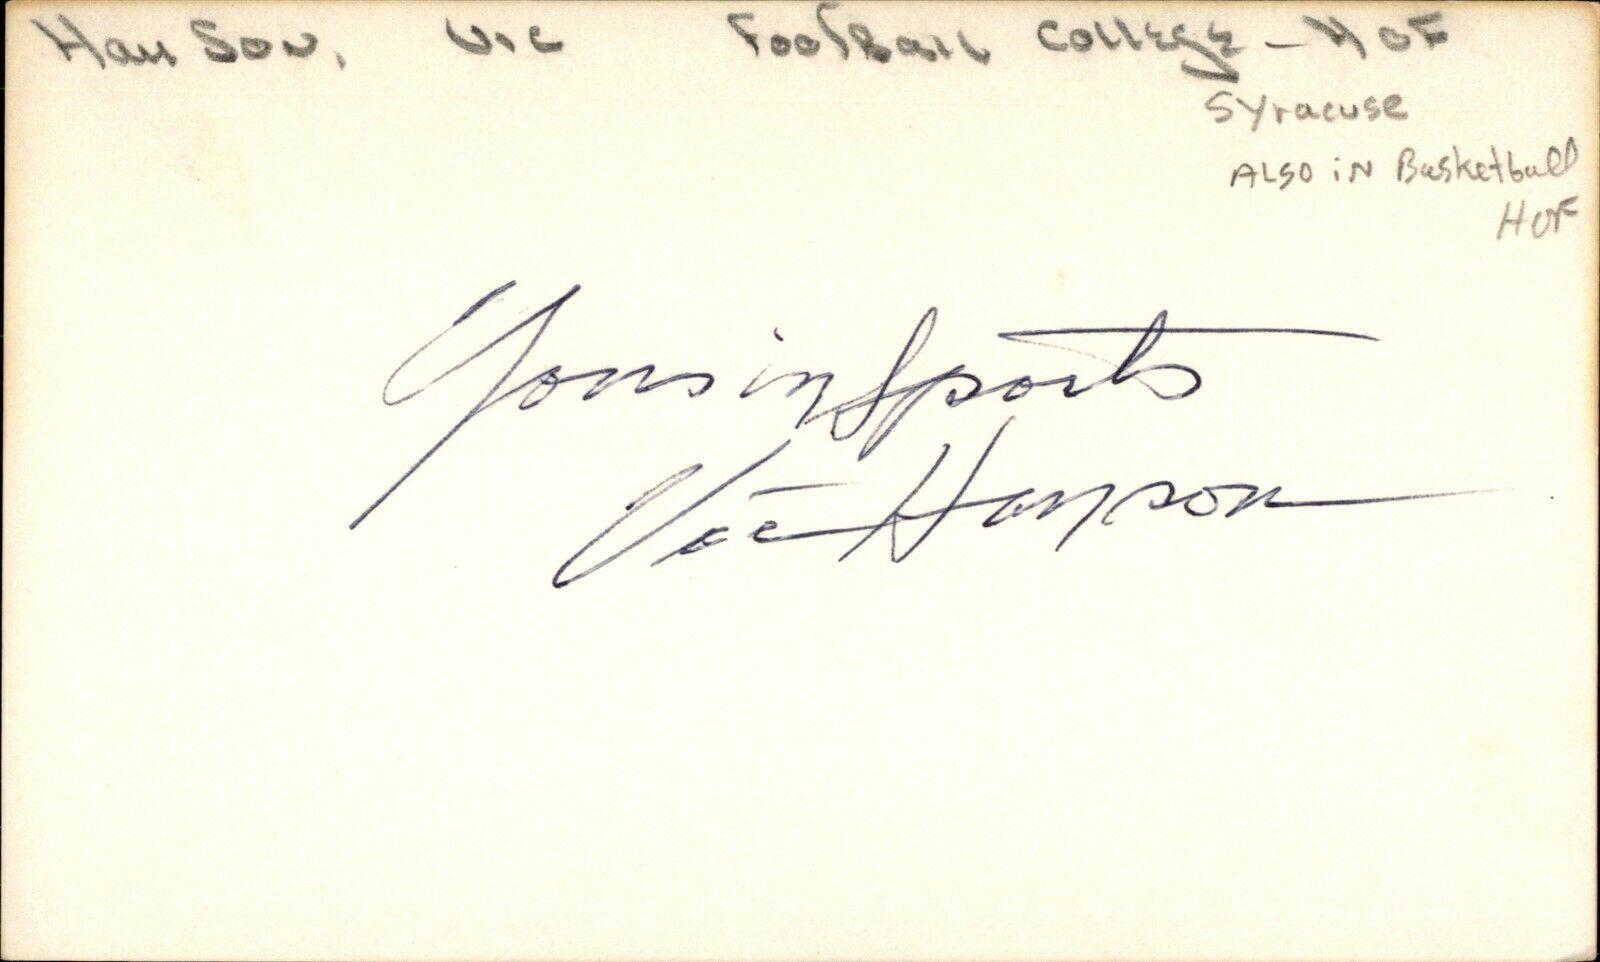 HanSon, Vic Football College - HOF
Syracuse
ALSO iN Basketball
HOF
Yours in Sports
Vic Hanson